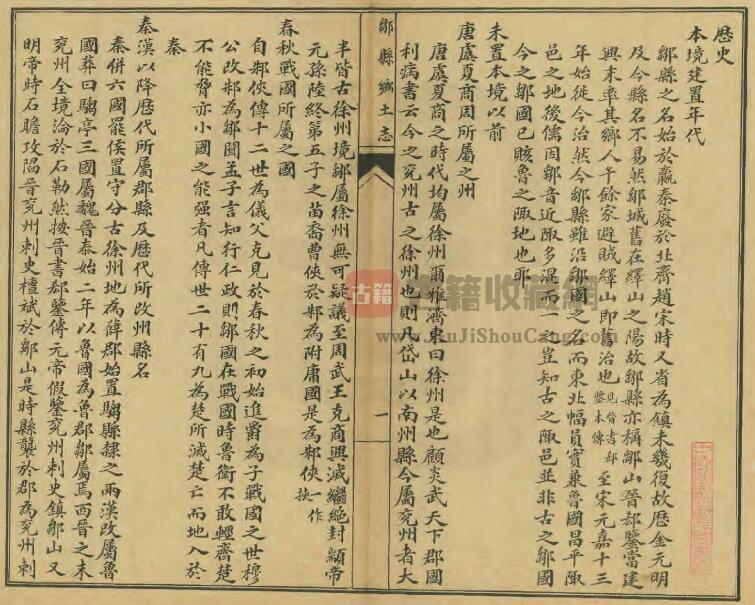 歷史
本境建置年代
鄒縣之名始於嬴秦廢於北齊趙宋時又省為鎮未幾復故歷金元明
及今縣名不易然鄒城舊在繹山之陽故鄒縣亦稱鄒山晉郄鑒當建
興末率其鄉人千餘家避賊繹山即舊治也見晉書郄鑒本傳至宋元嘉十三
年始徙今治然今鄒縣雖沿鄒國之名而東北幅員實兼魯國昌平陬
邑之地後儒因鄒音近陬多混而一之豈知古之陬邑並非古之鄒國
今之鄒國已賅魯之陬地也耶
未置本境以前
唐虞夏商周所屬之州
唐虞夏商之時代均屬徐州爾雅濟東曰徐州是也顧炎武天下郡國
利病書云今之兗州古之徐州也則凡岱山以南州縣今屬兗州者大
鄒縣鄉土志
一
半皆古徐州境鄒屬徐州無可疑議至周武王克商興滅繼絕封顓帝
元孫陸終第五子之苗裔曹俠於邾為附庸國是為邾俠一作挾
春秋戰國所屬之國
自邾俠傳十二世為儀父克見於春秋之初始進爵為子戰國之世穆
公改邾為鄒聞孟子言知行仁政則鄒國在戰國時魯衛不敢輕齊楚
不能脅亦小國之能强者凡傳世二十有九為楚所滅楚亡而地入於
秦
秦漢以降歷代所屬郡縣及歷代所改州縣名
秦併六國罷侯置守分古徐州地為薛郡始置騶縣隸之兩漢改屬魯
國莽曰騶亭三國屬魏晉泰始二年以魯國為魯郡鄒屬焉西晉之末
兗州全境淪於石勒然按晉書郄鑒傳元帝假鑒兗州刺史鎮鄒山又
明帝時石瞻攻陷晉兗州刺史檀斌於鄒山是時縣襲於郡為兗州刺
古籍收藏網
www.GuJiShouCang.com